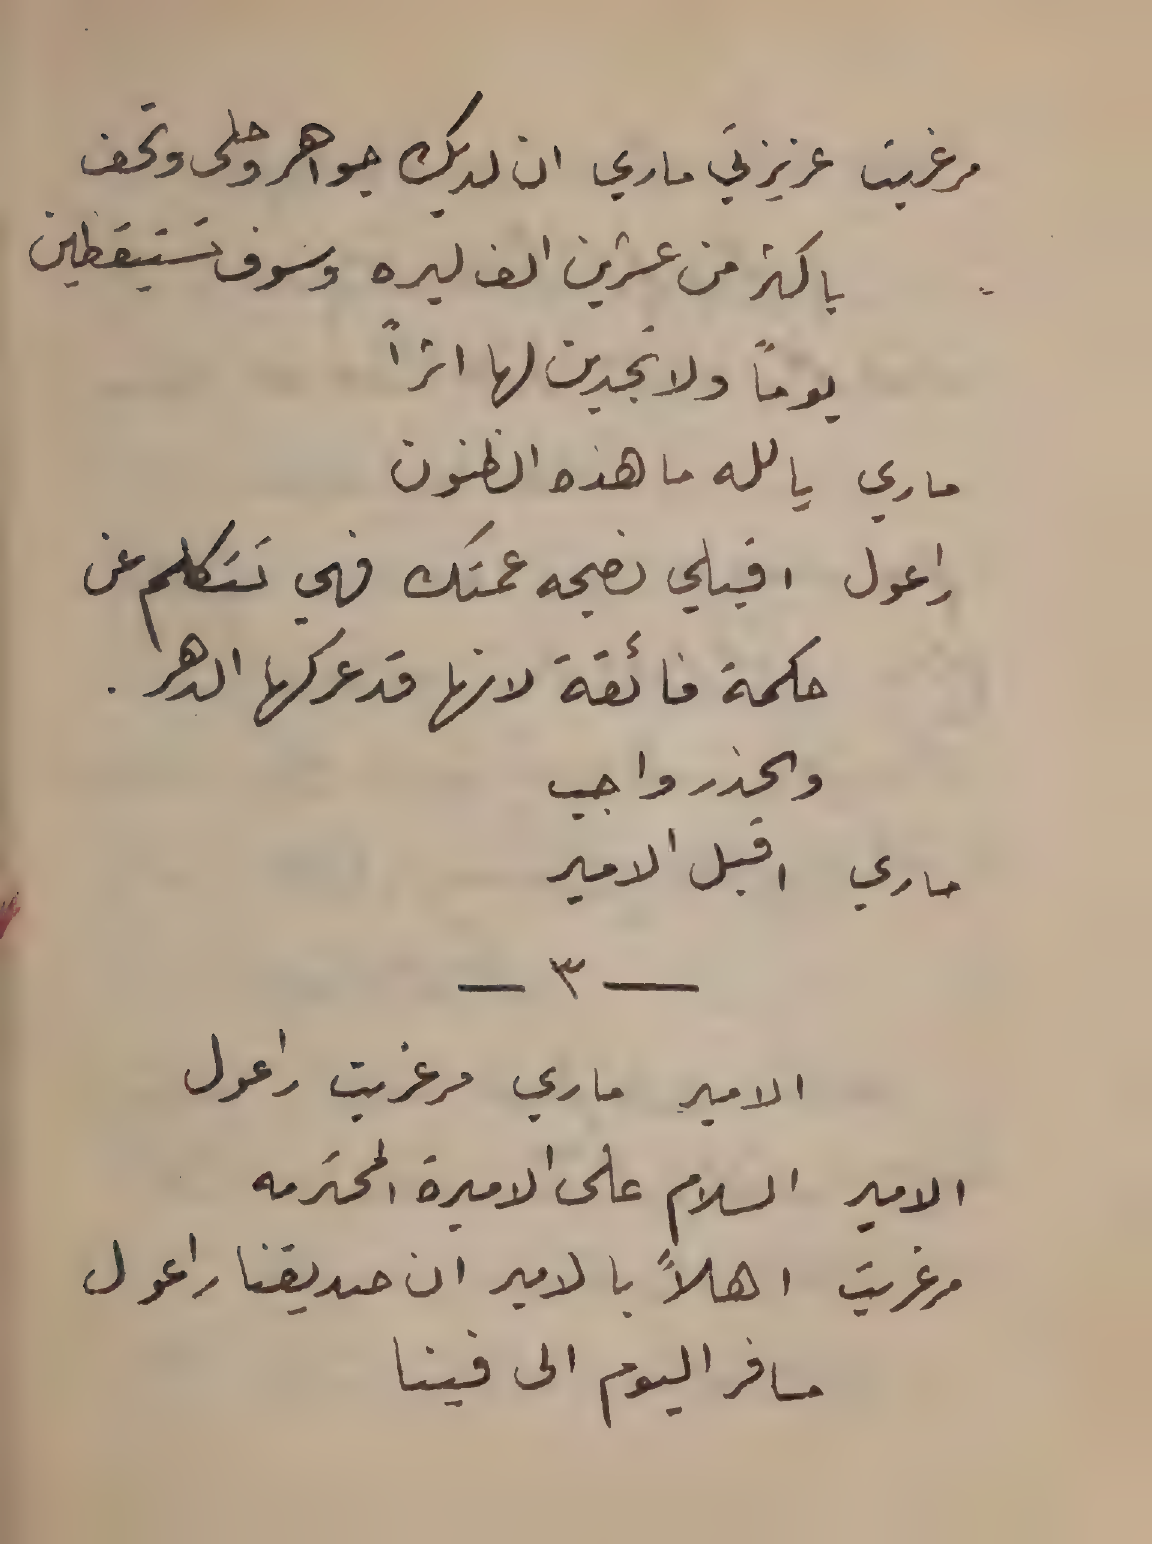 مرغريت عزيزتي ماري ان لديك جواهر وحلى وتحف
باكثر من عشرين الف ليره وسوف تستيقظين
يوماً ولا تجدين لها اثراً
ماري يالله ما هذه الظنون
راعول اقبلي نصيحه عمتك فهي تتكلم عن
حكمة فائقة لانها قد عركها الدهر .
والحذر واجب
ماري اقبل الامير
— ٣ —
الامير ماري مرغريت راعول
الامير السلام على الاميرة المحترمه
مرغريت اهلاً بالامير ان صديقنا راعول
مسافر اليوم الى فينا